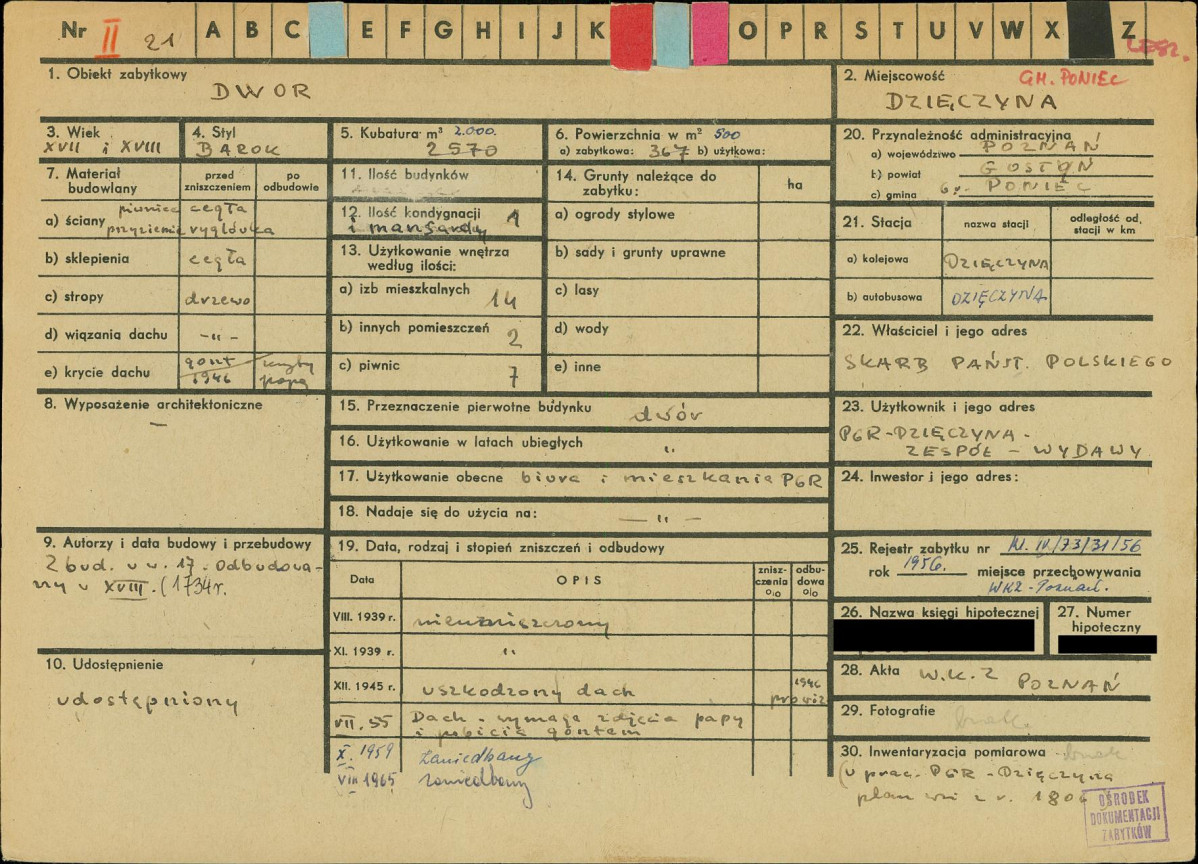 Nr II 21 A B C E F G H I J K O P R S T U V W X Z
1. Obiekt zabytkowy
DWÓR
2. Miejscowość GM. PONIEC
DZIĘCZYNA
3. Wiek
XVII i XVIII
4. Styl
BAROK
5. Kubatura m³ 2.000.
2570
6. Powierzchnia w m² 500
a) zabytkowa: 367 b) użytkowa:
7. Materiał budowlany
przed zniszczeniem
po odbudowie
a) ściany piwnice cegła
przyziemie ryglówka
b) sklepienia cegła
c) stropy drzewo
d) wiązania dachu -"-
e) krycie dachu gont 1946 kryty papą
8. Wyposażenie architektoniczne
—
9. Autorzy i data budowy i przebudowy
Zbud. w w. 17. Odbudowa-
ny w XVIII. (1734r.
10. Udostępnienie
udostępniony
11. Ilość budynków
12. Ilość kondygnacji 1
i mansardy
13. Użytkowanie wnętrza
według ilości:
a) izb mieszkalnych 14
b) innych pomieszczeń 2
c) piwnic 7
14. Grunty należące do
zabytku:
ha
a) ogrody stylowe
b) sady i grunty uprawne
c) lasy
d) wody
e) inne
15. Przeznaczenie pierwotne budynku dwór
16. Użytkowanie w latach ubiegłych "
17. Użytkowanie obecne biura i mieszkania PGR
18. Nadaje się do użycia na: — " —
19. Data, rodzaj i stopień zniszczeń i odbudowy
Data
OPIS
znisz-
czenia
o/o
odbu-
dowa
o/o
VIII. 1939 r. niezniszczony
XI. 1939 r. "
XII. 1945 r. uszkodzony dach 1946 prowiz
VII. 55 Dach - wymaga zdjęcia papy
i pobicia gontem
X. 1959 Zaniedbany
VIII 1965 zaniedbany
20. Przynależność administracyjna
a) województwo POZNAŃ
b) powiat GOSTYŃ
c) gmina PONIEC
21. Stacja
nazwa stacji
odległość od.
stacji w km
a) kolejowa DZIĘCZYNA
b) autobusowa DZIĘCZYNA
22. Właściciel i jego adres
SKARB PAŃST. POLSKIEGO
23. Użytkownik i jego adres
PGR-DZIĘCZYNA-
ZESPÓŁ - WYDAWY
24. Inwestor i jego adres:
25. Rejestr zabytku nr Kl. IV/73/31/56
rok 1956. miejsce przechowywania
WKZ-Poznań.
26. Nazwa księgi hipotecznej
27. Numer
hipoteczny
28. Akta W.K.Z POZNAŃ
29. Fotografie brak
30. Inwentaryzacja pomiarowa - brak
(w prac. PGR - Dzięczyna
plan wsi z r. 180
OŚRODEK
DOKUMENTACJI
ZABYTKÓW